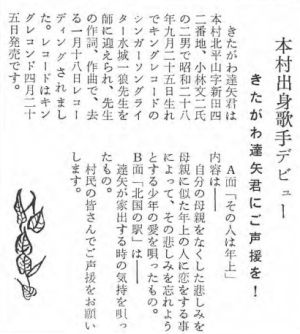 本村出身歌手デビュー
きたがわ達矢君にご声援を！
きたがわ達矢君は
本村北平山字新田四
二番地、小林文二氏
の二男で昭和二十八
年九月二十五日生れ
でキングレコードの
シンガーソングライ
ター水城一狼先生を
師に迎えられ、先生
の作詞、作曲で、去
る一月十八日レコー
ディングされまし
た。レコードはキン
グレコード四月二十
五日発売です。
A面「その人は年上」
内容は――
自分の母親をなくした悲しみを
母親に似た年上の人に恋をする事
によって、その悲しみを忘れよう
とする少年の愛を唄ったもの。
B面「北国の駅」は――
達矢が家出する時の気持を唄っ
たもの。
村民の皆さんでご声援をお願い
します。